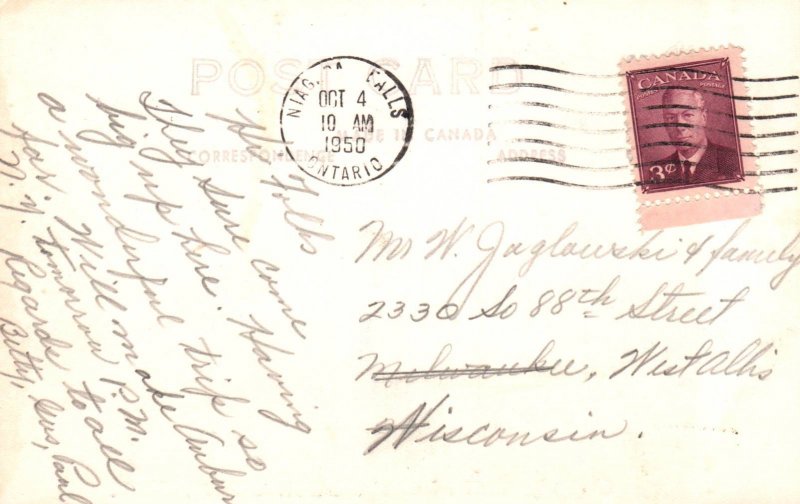 POST CARD
NIAGARA FALLS
OCT 4
10 AM
1950
ONTARIO
MADE IN CANADA
CORRESPONDENCE
ADDRESS
CANADA
POSTES POSTAGE
3¢
Hi Folks
They sure come
big up here. Having
a wonderful trip so
far. Will make Auburn
N.Y. tomorrow P.M.
Regards to all
Betty, Gus, Paul
Mr W. Jaglowski & family
2330 So 88th Street
Milwaukee, West Allis
Wisconsin.